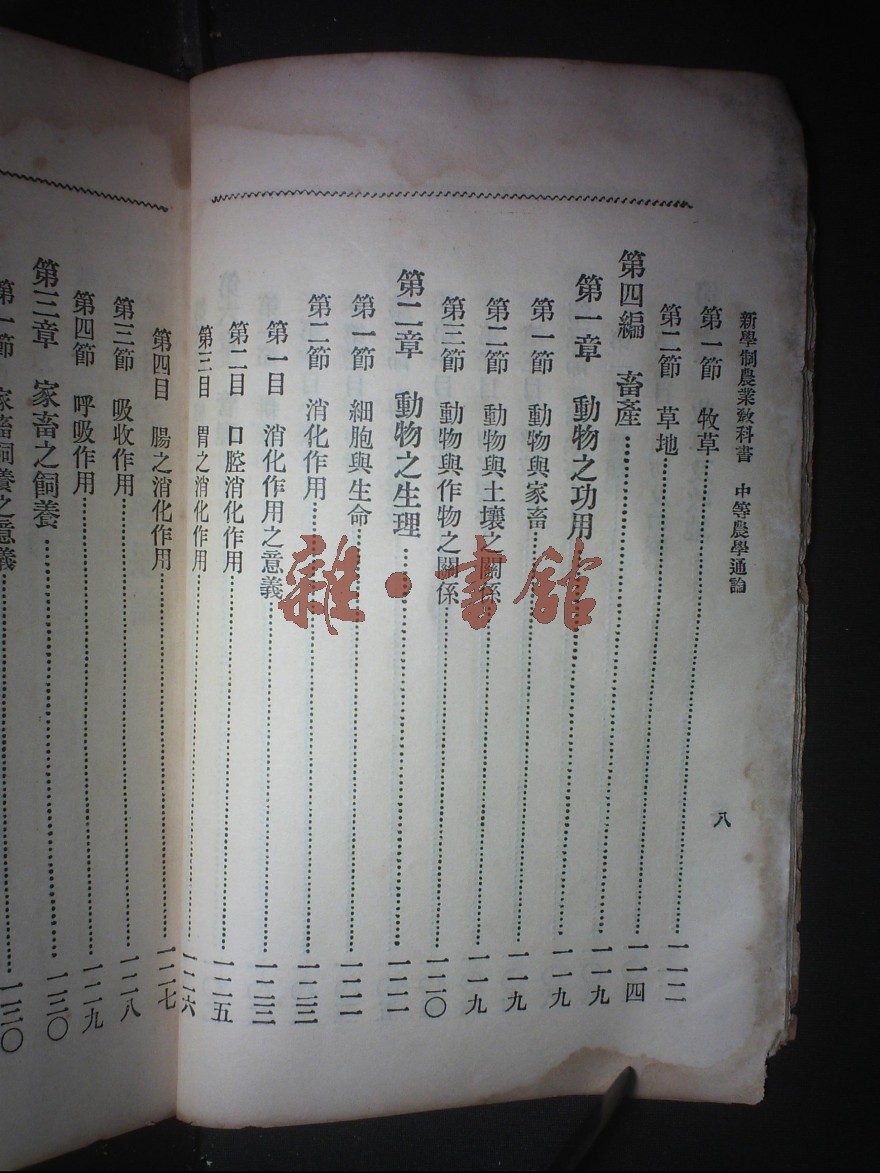 新學制農業教科書　中等農學通論　八
第一節　牧草……一一二
第二節　草地……一一四
第四編　畜產……一一九
第一章　動物之功用……一一九
第一節　動物與家畜……一一九
第二節　動物與土壤之關係……一一九
第三節　動物與作物之關係……一二〇
第二章　動物之生理……一二一
第一節　細胞與生命……一二一
第二節　消化作用……一二三
第一目　消化作用之意義……一二三
第二目　口腔消化作用……一二五
第三目　胃之消化作用……一二六
第四目　腸之消化作用……一二七
第三節　吸收作用……一二八
第四節　呼吸作用……一二九
第三章　家畜之飼養……一三〇
第一節　家畜飼養之意義……一三〇
雜·書館